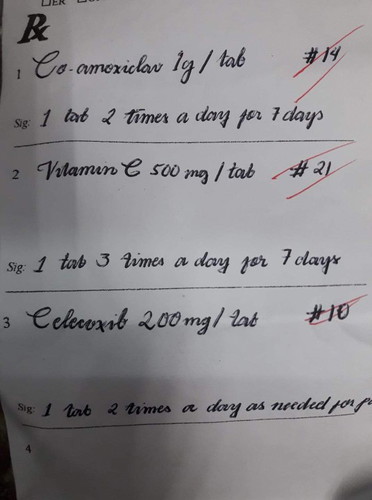 ER
Rx
1 Co-amoxiclav 1g / tab #14
Sig: 1 tab 2 times a day for 7 days
2 Vitamin C 500 mg / tab #21
Sig: 1 tab 3 times a day for 7 days
3 Celecoxib 200 mg / tab #10
Sig: 1 tab 2 times a day as needed for
4